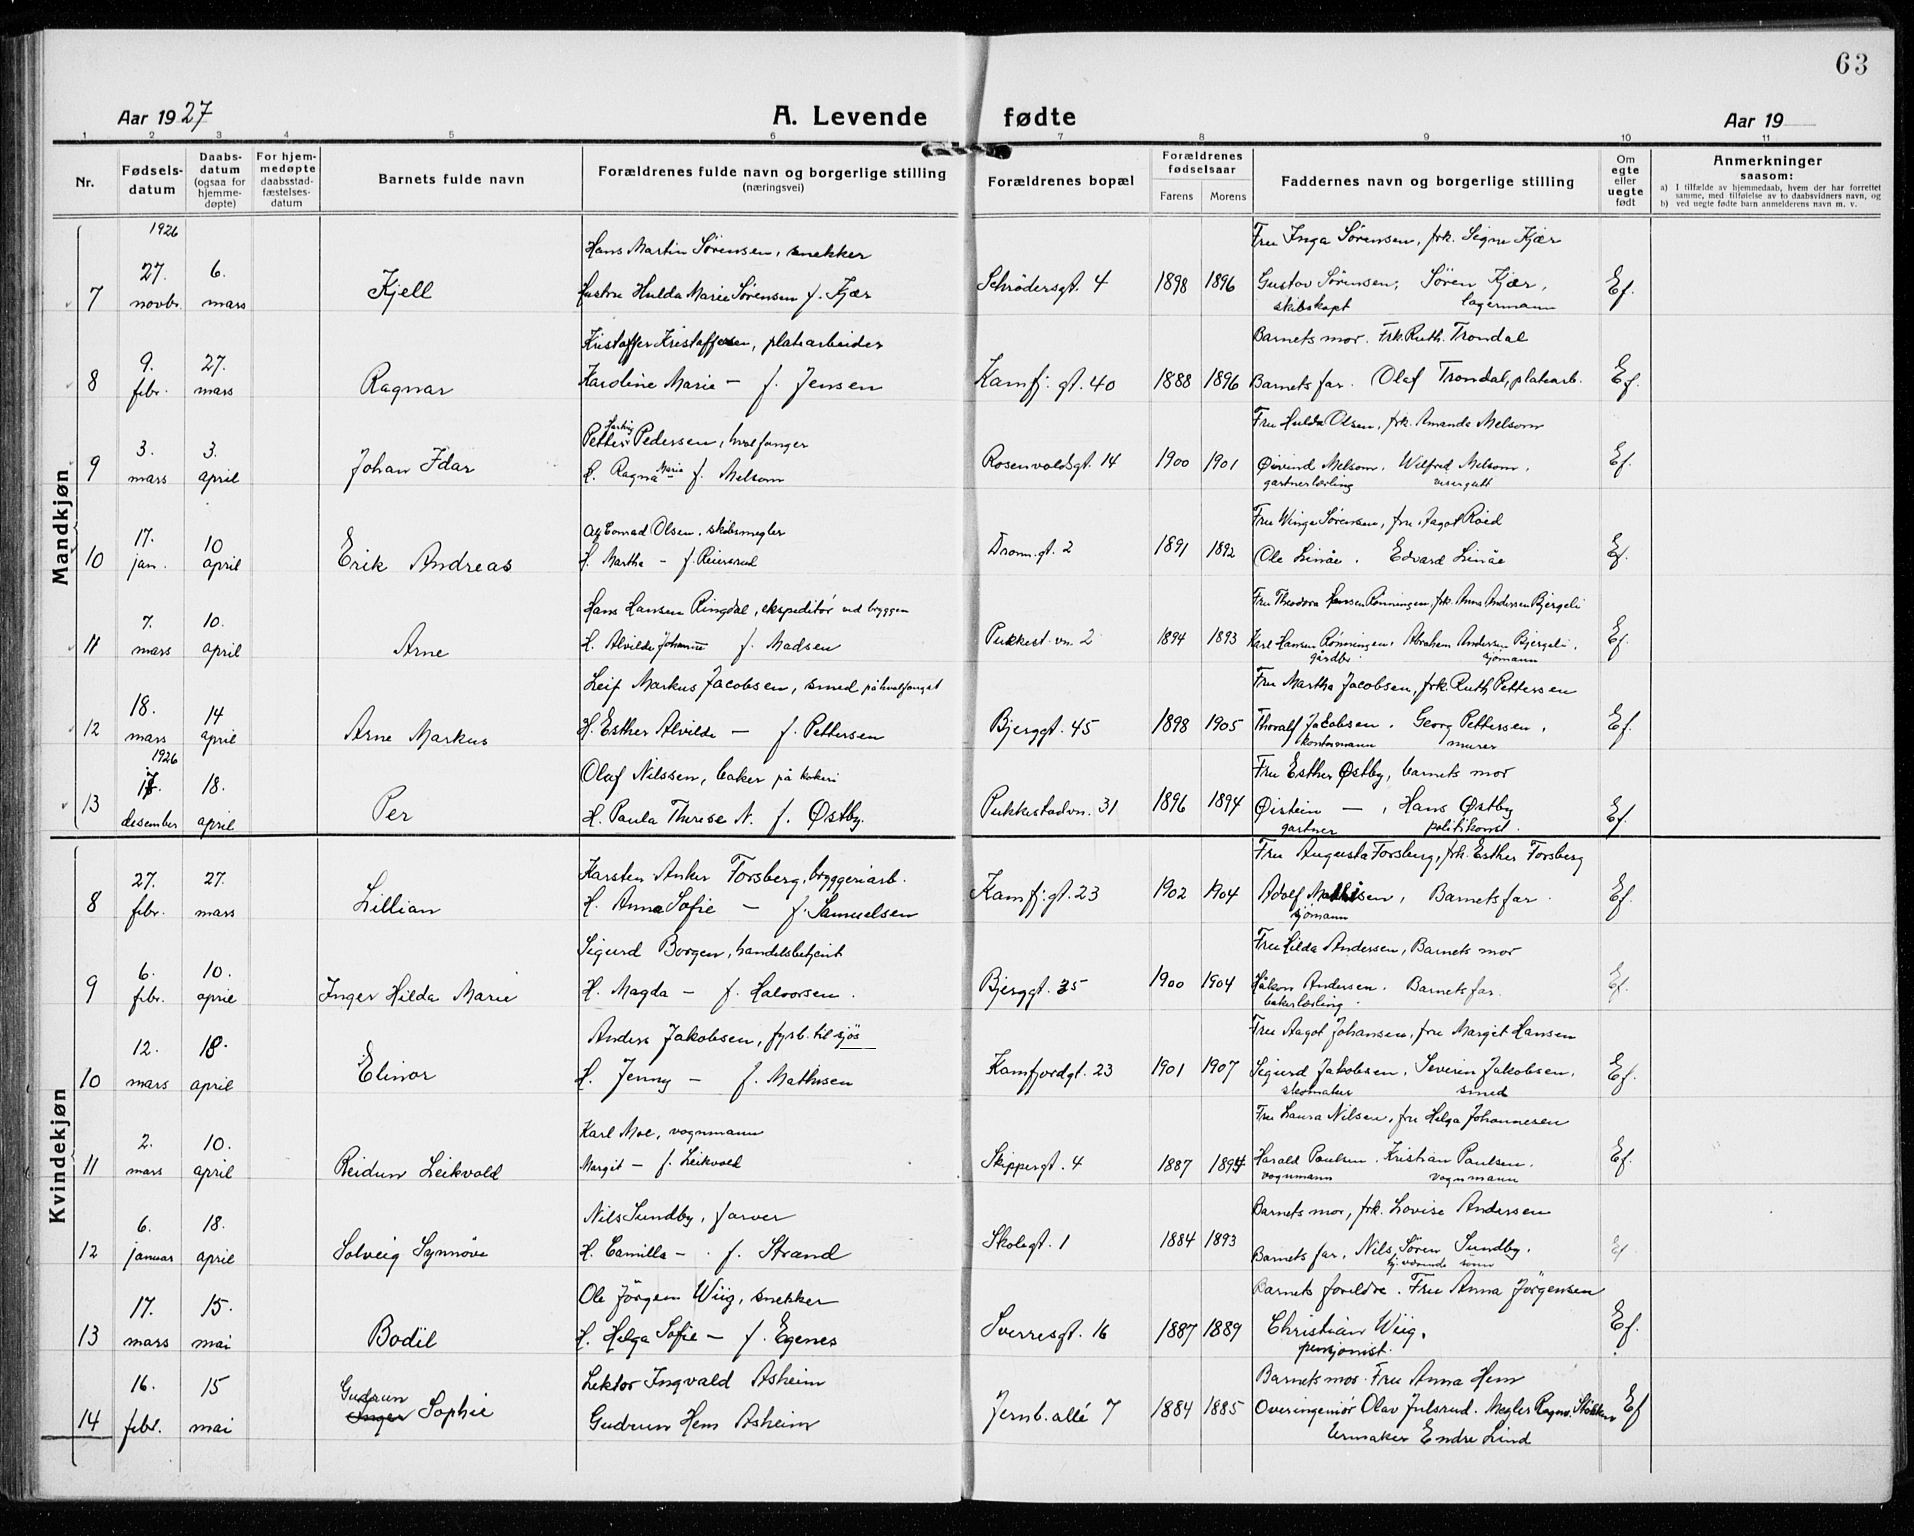 63
Aar 1927
A. Levende fødte
Aar 19
1 2 3 4 5 6 7 8 9 10 11
Nr.
Fødsels-
datum
Daabs-
datum
(ogsaa for
hjemme-
døpte)
For hjem-
medøpte
daabsstad-
fæstelses-
datum
Barnets fulde navn
Forældrenes fulde navn og borgerlige stilling
(næringsvei)
Forældrenes bopæl
Forældrenes
fødselsaar
Farens Morens
Faddernes navn og borgerlige stilling
Om
egte
eller
uegte
født
Anmerkninger
saasom:
a) I tilfælde av hjemmedaab, hvem der har forrettet
samme, med tilføielse av to daabsvidners navn, og
b) ved uegte fødte barn anmelderens navn m. v.
Mandkjøn
1926
Hans Martin Sørensen, snekker
Fru Inga Sørensen, frk. Signe Kjær
27. 6.
7 novbr. mars Kjell Hustru Hulda Marie Sørensen f. Kjær Schrødersgt. 4 1898 1896 Gustav Sørensen, Søren Kjær, Ef.
skibskapt lagermann
Kristoffer Kristoffersen, platearbeider
Barnets mor. Frk. Ruth Trondal
9. 27.
8 febr. mars Ragnar Karoline Marie — f. Jensen Kamfj. gt. 40 1888 1896 Barnets far. Olaf Trondal, platearb. Ef.
Fru Hulda Olsen, frk. Amanda Melsom
Petter Hartvig Pedersen, hvalfanger
3. 3.
9 mars april Johan Idar H. Ragna Marie — f. Melsom Rosenvoldsgt. 14 1900 1901 Øivind Melsom, Wilfred Melsom, Ef.
gartnerlærling visergutt
Fru Winga Sørensen, fru Aagot Røed
Alf Conrad Olsen, skibsmegler
17. 10
10 jan. april Erik Andreas H. Martha — f. Reiersrud Dronn.gt. 2 1891 1892 Ole Linåe. Edvard Linåe Ef.
Hans Hansen Ringdal, ekspeditør ved bryggen
Fru Theodora Hansen Rønningen, frk. Anna Andersen Bjergeli
7. 10.
11 mars april Arne H. Alvilde Johanne f. Madsen Pukkest. vn. 2 1894 1893 Karl Hansen Rønningen, Abraham Andersen Bjergeli, Ef.
gårdbr. sjømann
Leif Markus Jacobsen, smed på hvalfangst
Fru Martha Jacobsen, frk. Ruth Pettersen
18. 14
12 mars april Arne Markus H. Esther Alvilde — f. Pettersen Bjerggt. 45 1898 1905 Thoralf Jacobsen. Georg Pettersen, Ef.
kontormann murer
1926
Olaf Nilssen, baker på kokeri
Fru Esther Østby, barnets mor
17. 18.
13 desember april Per H. Paula Therese N. f. Østby. Pukkestadvn. 31 1896 1894 Øistein —, Hans Østby Ef.
gartner politikonst.
Kvindekjøn
Fru Augusta Forsberg, frk. Esther Forsberg
Karsten Anker Forsberg, bryggeriarb.
27. 27.
8 febr. mars Lillian H. Anna Sofie — f. Samuelsen Kamfj. gt. 23 1902 1904 Adolf Mathisen, Barnets far. Ef.
sjømann
Sigurd Borgen, handelsbetjent
Fru Hilda Andersen, Barnets mor
6. 10.
9 febr. april Inger Hilda Marie H. Magda — f. Halvorsen. Bjerggt. 35 1900 1904 Håkon Andersen. Barnets far. Ef.
bakerlærling.
Anders Jakobsen, fyrb. til sjøs
Fru Aagot Johansen, fru Margit Hansen
12. 18.
10 mars april Elinor H. Jenny — f. Mathisen Kamfjordgt. 23 1901 1907 Sigurd Jakobsen. Severin Jakobsen. Ef.
skomaker smed
Fru Laura Nilsen, fru Helga Johannesen
Karl Moe, vognmann
2. 10.
11 mars april Reidun Leikvold Margit — f. Leikvold Skippergt. 4 1887 1894 Harald Paulsen. Kristian Paulsen. Ef.
vognmann vognmann
Nils Sundby, farver
Barnets mor, frk. Lovise Andersen
6. 18.
12 januar april Solveig Synnøve H. Camilla — f. Strand Skolegt. 1 1884 1893 Barnets far. Nils Søren Sundby. Ef.
hj. værende sønn
Ole Jörgen Wiig, snekker
Barnets foreldre. Fru Anna Jörgensen
17. 15.
13 mars mai Bodil H. Helga Sofie — f. Egenes Sverresgt. 16 1887 1889 Christian Wiig. Ef.
pensjonist.
Lektor Ingvald Asheim
Barnets mor. Fru Anna Hem
16. 15
14 febr. mai Gudrun Sophie Gudrun Hem Asheim Jernb. allé 7 1884 1885 Overingeniør Olav Julsrud. Megler Ragnv. Stokken Ef
Urmaker Endre Lind